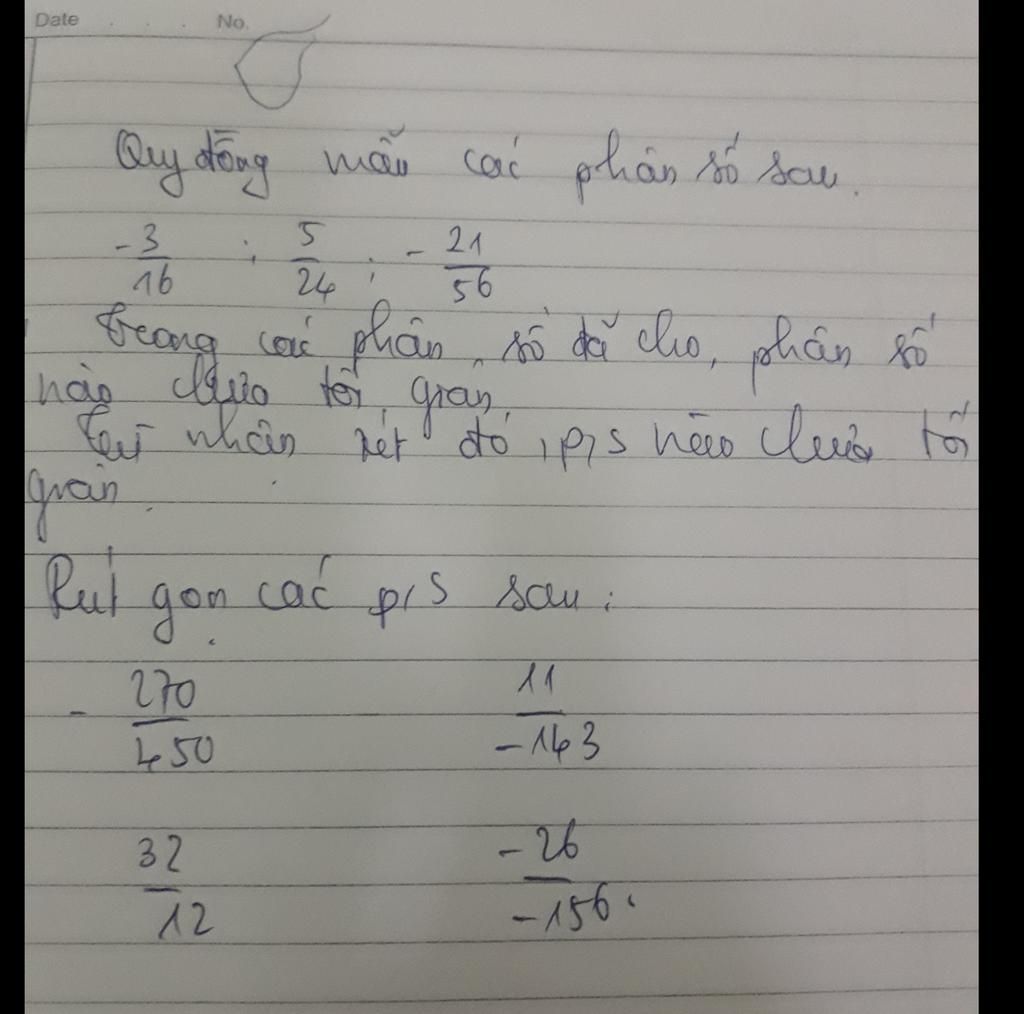 Date . . . No.
Quy đồng mẫu các phân số sau.
-3/16 ; 5/24 ; -21/56
trong các phân số đã cho, phân số
nào chưa tối giản.
Từ nhân xét đó, p/s nào chưa tối
giản.
Rút gọn các p/s sau:
-270/450 11/-143
32/12 -26/-156.